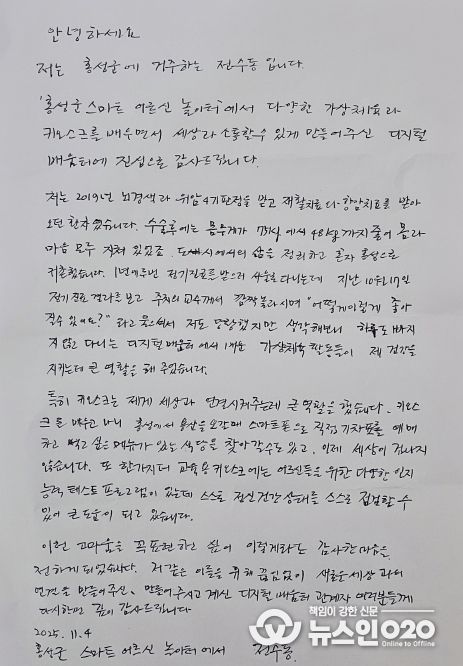 안녕하세요
저는 홍성군에 거주하는 전수동입니다.
'홍성군 스마트 어르신 놀이터'에서 다양한 가상체육과
키오스크를 배우면서 세상과 소통할 수 있게 만들어주신 디지털
배움터에 진심으로 감사드립니다.
저는 2019년 뇌경색과 위암4기판정을 받고 재활치료와 항암치료를 받아
오던 환자였습니다. 수술후에는 몸무게가 78kg에서 48kg까지 줄어 몸과
마음 모두 지쳐 있었죠. 도시에서의 삶을 정리하고 혼자 홍성으로
귀촌했습니다. 1년에 두번 정기진료를 받으러 서울로 다니는데 지난 10월17일
정기진료 결과를 보고 주치의 교수께서 깜짝 놀라시며 "어떻게 이렇게 좋아
질수 있어요?" 라고 물으셔서 저도 당황했지만 생각해보니 하루도 빠지
지 않고 다니는 디지털 배움터에서 배운 가상체육 활동들이 제 건강을
지키는데 큰 역할을 해 주었습니다.
특히 키오스크는 제게 세상과 연결시켜주는데 큰 역할을 했습니다. 키오스
크를 배우고 나니 홍성에서 용산을 오갈때 스마트폰으로 직접 기차표를 예매
하고 먹고 싶은 메뉴가 있는 식당을 찾아 갈수도 있고, 이제 세상이 겁나지
않습니다. 또 한가지더 교육용 키오스크에는 어르신들을 위한 다양한 인지
능력 테스트 프로그램이 있는데 스스로 정신건강 상태를 스스로 점검할 수
있어 큰 도움이 되고 있습니다.
이런 고마움을 꼭 표현하고 싶어 이렇게라도 감사한 마음을
전하게 되었습니다. 저 같은 이들을 위해 끊임없이 새로운 세상과의
연결을 만들어주신, 만들어 주시고 계신 디지털 배움터 관계자 여러분들께
다시한번 깊이 감사드립니다
2025. 11. 4
홍성군 스마트 어르신 놀이터에서 전수동.
책임이 강한 신문
뉴스인020
Online to Offline